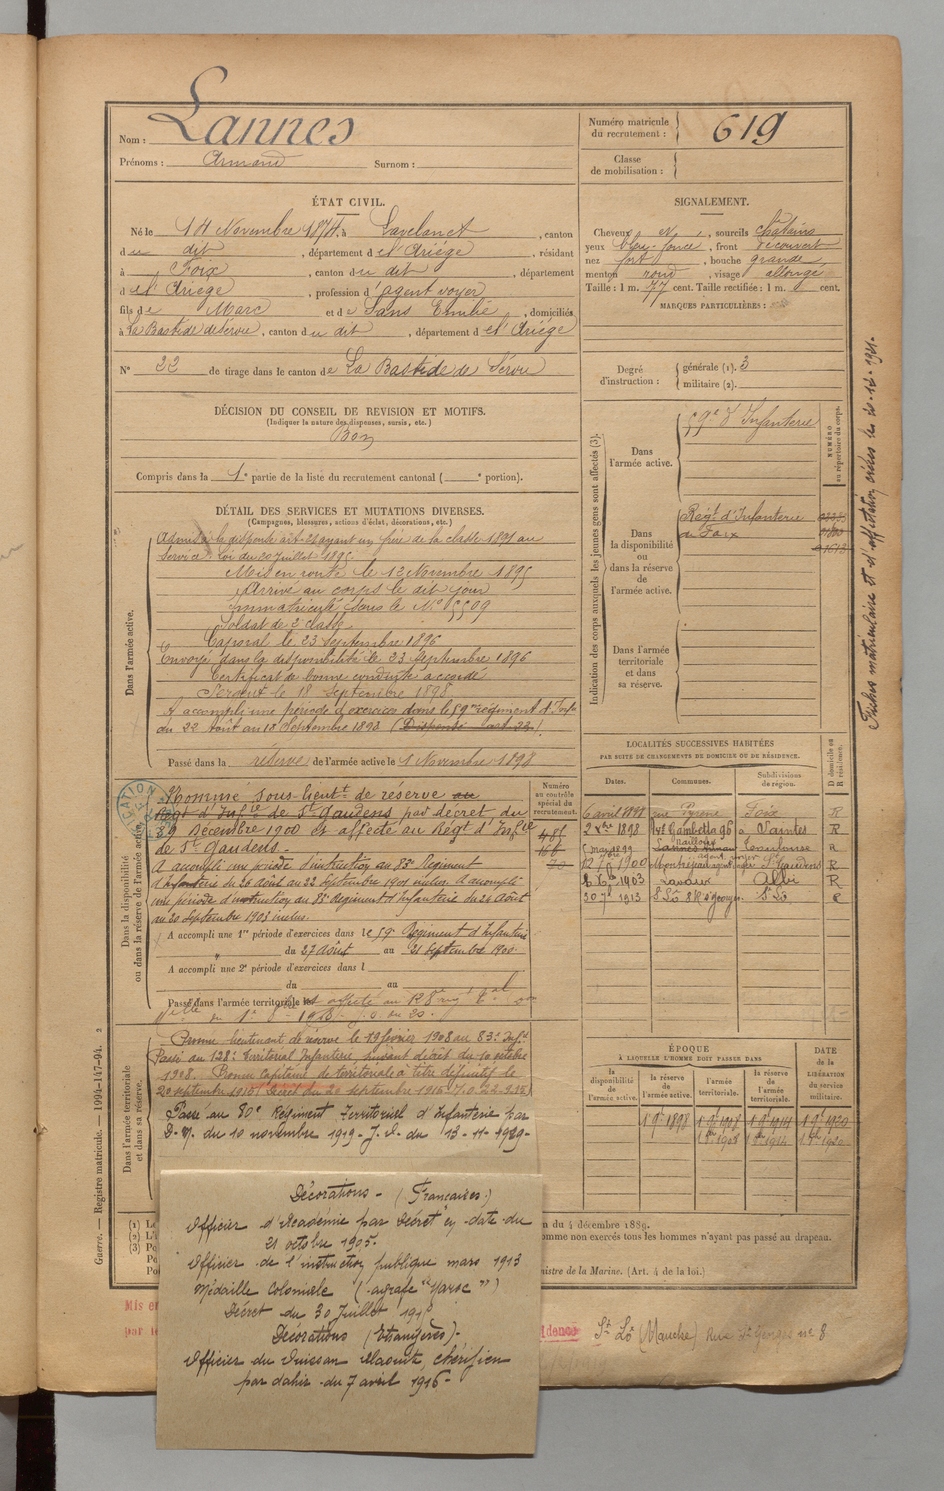 Nom : Lannes
Prénoms : Armand Surnom :
Numéro matricule du recrutement : 619
Classe de mobilisation :
ÉTAT CIVIL.
Né le 14 Novembre 1874, à Lavelanet, canton
du dit, département de l'Ariège, résidant
à Foix, canton du dit, département
de l'Ariège, profession d'agent voyer
fils de Marc et de Sans Emilie, domiciliés
à La Bastide de Sérou, canton du dit, département de l'Ariège
N° 22 de tirage dans le canton de La Bastide de Sérou
DÉCISION DU CONSEIL DE REVISION ET MOTIFS.
(Indiquer la nature des dispenses, sursis, etc.)
Bon
Compris dans la 1e partie de la liste du recrutement cantonal ( e portion).
SIGNALEMENT.
Cheveux , sourcils châtains
yeux bleu-foncé, front découvert
nez fort, bouche grande
menton rond, visage allongé
Taille : 1 m. 77 cent. Taille rectifiée : 1 m. cent.
MARQUES PARTICULIÈRES :
Degré d'instruction : générale (1). 3
militaire (2).
DÉTAIL DES SERVICES ET MUTATIONS DIVERSES.
(Campagnes, blessures, actions d'éclat, décorations, etc.)
Dans l'armée active.
Admis à la dispense art. 21 ayant un frère de la classe 1891 au
service loi du 20 Juillet 1895
Mis en route le 12 Novembre 1895
Arrivé au corps le dit jour
Immatriculé sous le N° 5509
Soldat de 2e classe
Caporal le 23 Septembre 1896
Envoyé dans la disponibilité le 23 Septembre 1896
Certificat de bonne conduite accordé
Sergent le 18 Septembre 1898.
A accompli une période d'exercices dans le 59me régiment d'Infie
du 22 Août au 18 Septembre 1898 (Dispensé art. 22).
Passé dans la réserve de l'armée active le 1 Novembre 1898
Indication des corps auxquels les jeunes gens sont affectés (3).
NUMÉRO au répertoire du corps.
Dans l'armée active.
59e d'Infanterie
Dans la disponibilité ou dans la réserve de l'armée active.
Régt d'Infanterie
de Foix
Dans l'armée territoriale et dans sa réserve.
Dans la disponibilité ou dans la réserve de l'armée active.
Numéro au contrôle spécial du recrutement.
Nommé sous-lieutt de réserve au
Régt d'Infie de St Gaudens par décret du
29 Décembre 1900 et affecté au Régt d'Infie
de St Gaudens.
A accompli une période d'instruction au 83e Régiment
d'Infanterie du 26 Août au 22 Septembre 1901 inclus. A accompli
une période d'instruction au 83e Régiment d'Infanterie du 24 Août
au 20 Septembre 1903 inclus.
A accompli une 1re période d'exercices dans le 59e Régiment d'Infanterie
du 27 Août au 21 Septembre 1900.
A accompli une 2e période d'exercices dans l
du au
Passé dans l'armée territoriale le
LOCALITÉS SUCCESSIVES HABITÉES
PAR SUITE DE CHANGEMENTS DE DOMICILE OU DE RÉSIDENCE.
Dates. Communes. Subdivisions de région. D domicile ou R résidence.
6 avril 1898 Foix R
2 Xbre 1898 Bd Gambetta 96 à Saintes R
5 mai 1899 Toulouse R
12 1900 Montréjeau agent voyer St Gaudens R
1903 Lavaur Albi R
1913 St Lô 8 R. St Georges St Lô R
Dans l'armée territoriale et dans sa réserve.
Promu lieutenant de réserve le 19 février 1908 au 83e Inft
Passé au 128e Territorial Infanterie, suivant décret du 10 octobre
1908. Promu Capitaine de territoriale à titre définitif le
20 septembre 1915 (Décret du 20 septembre 1915 J.O. 22.9.15)
Passé au 80e Régiment Territorial d'Infanterie par
D. M. du 10 novembre 1919 - J. O. du 13-11-1919 -
ÉPOQUE
À LAQUELLE L'HOMME DOIT PASSER DANS
DATE DE LA LIBÉRATION du service militaire.
la disponibilité de l'armée active. la réserve de l'armée active. l'armée territoriale. la réserve de l'armée territoriale.
1 9bre 1898 1 9bre 1908 1 9bre 1914 1 9bre 1920
Décorations - (Françaises)
Officier d'Académie par Décret en date du
21 octobre 1905.
Officier de l'instruction publique mars 1913
Médaille Coloniale (agrafe "Maroc")
Décret du 30 Juillet
Décorations (Étrangères) -
Officier du Ouissam Alaouite chérifien
par dahir du 7 avril 1916 -
(1)
(2)
(3)
n du 4 décembre 1889.
omme non exercés tous les hommes n'ayant pas passé au drapeau.
nistre de la Marine. (Art. 4 de la loi.)
St Lô (Manche) Rue St Georges n° 8
Guerre. — Registre matricule. — 1994-147-94.
Fiches matriculaire et d'affectation créées le